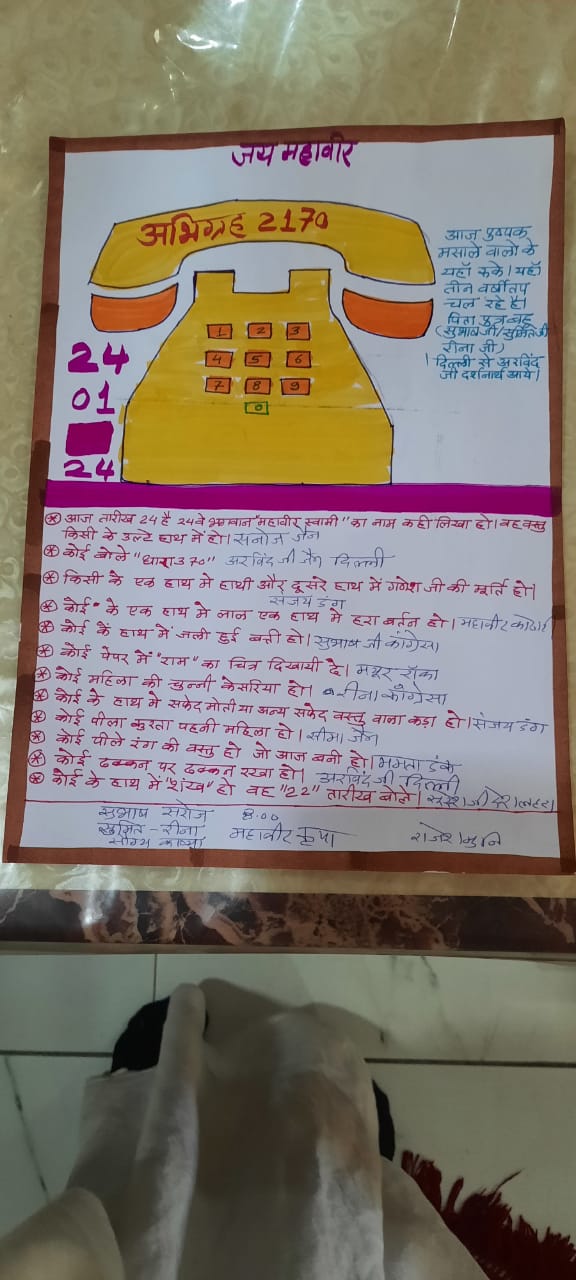 जय महावीर
अभिग्रह 2170
आज पुष्पक
मसाले वालो के
यहाँ रुके। यहाँ
तीन वर्षीतप
चल रहे है।
पिता पुत्र बहु
(सुभाष जी/सुमितजी
रीना जी)
दिल्ली से अरविंद
जी दर्शनार्थ आये।
1 2 3
4 5 6
7 8 9
0
24
01
24
* आज तारीख 24 है 24वे भगवान "महावीर स्वामी" का नाम कही लिखा हो। वह वस्तु
किसी के उल्टे हाथ मे हो। सनोज जैन
* कोई बोले "धारा 370" अरविंद जी जैन दिल्ली
* किसी के एक हाथ मे हाथी और दूसरे हाथ में गणेश जी की मूर्ति हो।
संजय डंग
* कोई के एक हाथ मे लाल एक हाथ मे हरा बर्तन हो। महावीर
* कोई के हाथ में जली हुई बत्ती हो। सुभाष जी कांग्रेसा
* कोई पेपर में "राम" का चित्र दिखायी दे। मयूर रांका
* कोई महिला की चुन्नी केसरिया हो। रीना काँग्रेसा
* कोई के हाथ में सफेद मोती या अन्य सफेद वस्तु वाला कड़ा हो। संजय डंग
* कोई पीला कुरता पहनी महिला हो। सीमा जैन
* कोई पीले रंग की वस्तु हो जो आज बनी हो। ममता डंक
* कोई ढक्कन पर ढक्कन रखा हो। अरविंद जी दिल्ली
* कोई के हाथ में "शंख" हो वह "22" तारीख बोले।
सुभाष सरोज 8.00
सुमित - रीना महावीर कृपा राजेश मुनि
सौम्य काव्या